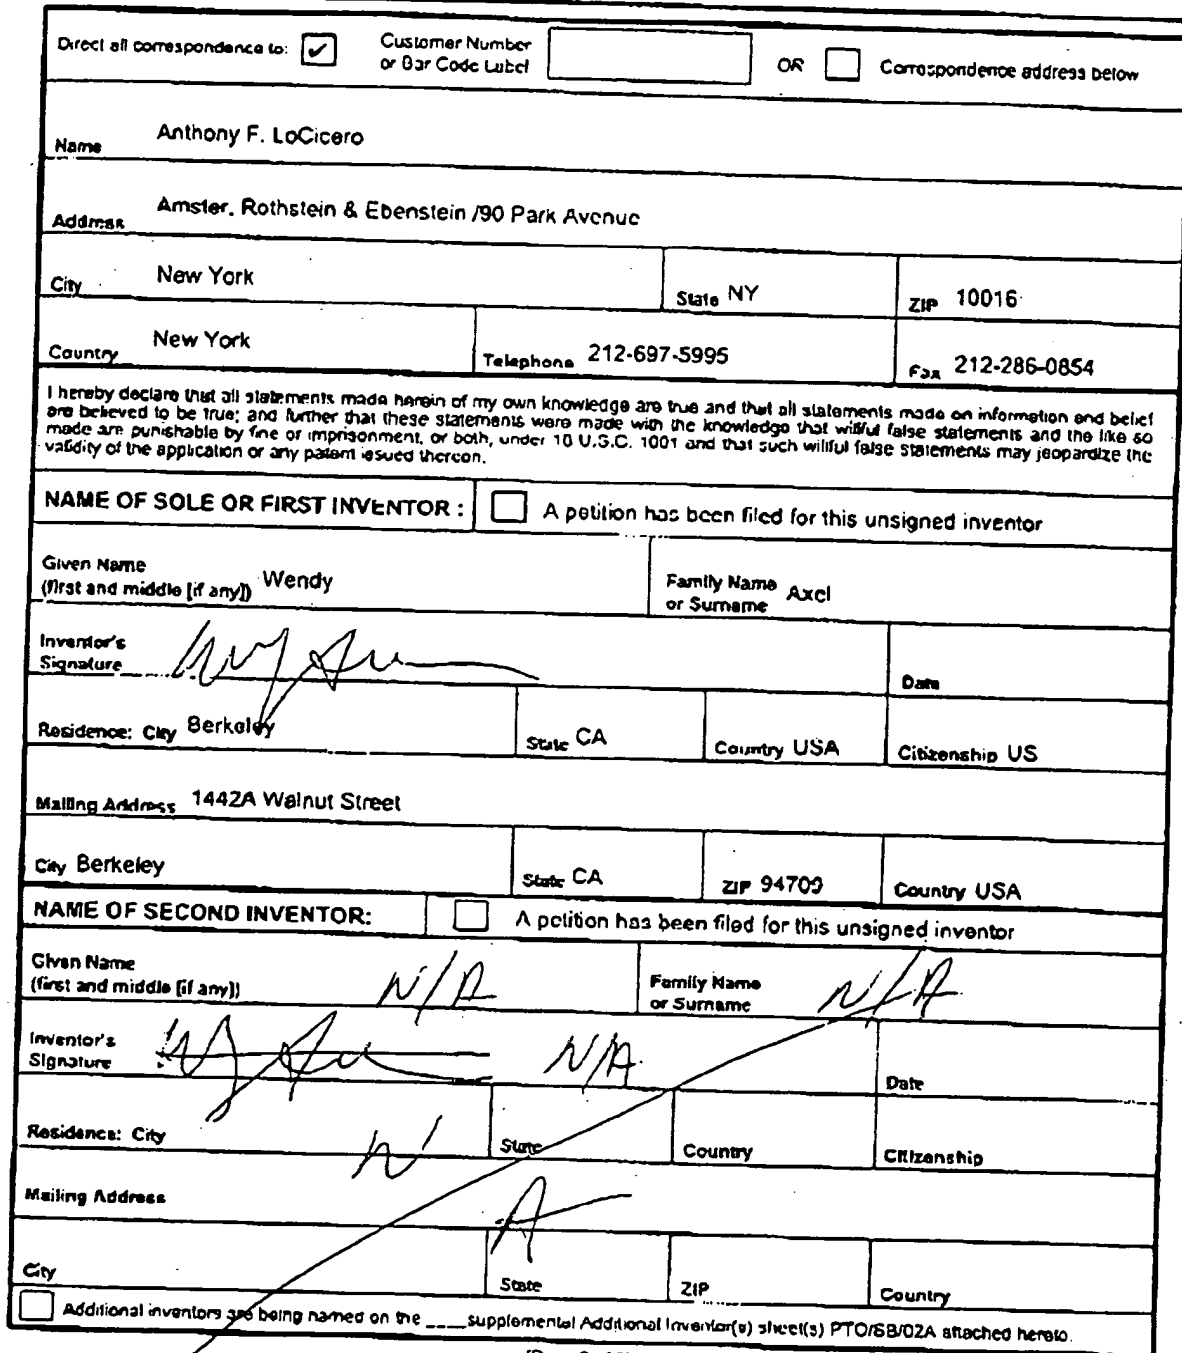 Direct all correspondence to: ✓ Customer Number or Bar Code Label OR Correspondence address below
Name Anthony F. LoCicero
Address Amster, Rothstein & Ebenstein /90 Park Avenue
City New York State NY ZIP 10016
Country New York Telephone 212-697-5995 Fax 212-286-0854
I hereby declare that all statements made herein of my own knowledge are true and that all statements made on information and belief
are believed to be true; and further that these statements were made with the knowledge that willful false statements and the like so
made are punishable by fine or imprisonment, or both, under 18 U.S.C. 1001 and that such willful false statements may jeopardize the
validity of the application or any patent issued thereon.
NAME OF SOLE OR FIRST INVENTOR : A petition has been filed for this unsigned inventor
Given Name
(first and middle [if any]) Wendy Family Name or Surname Axel
Inventor's
Signature Date
Residence: City Berkeley State CA Country USA Citizenship US
Mailing Address 1442A Walnut Street
City Berkeley State CA ZIP 94709 Country USA
NAME OF SECOND INVENTOR: A petition has been filed for this unsigned inventor
Given Name
(first and middle [if any]) N/A Family Name or Surname N/A
Inventor's
Signature N/A Date
Residence: City N State Country Citizenship
Mailing Address A
City State ZIP Country
Additional inventors are being named on the ____ supplemental Additional Inventor(s) sheet(s) PTO/SB/02A attached hereto.